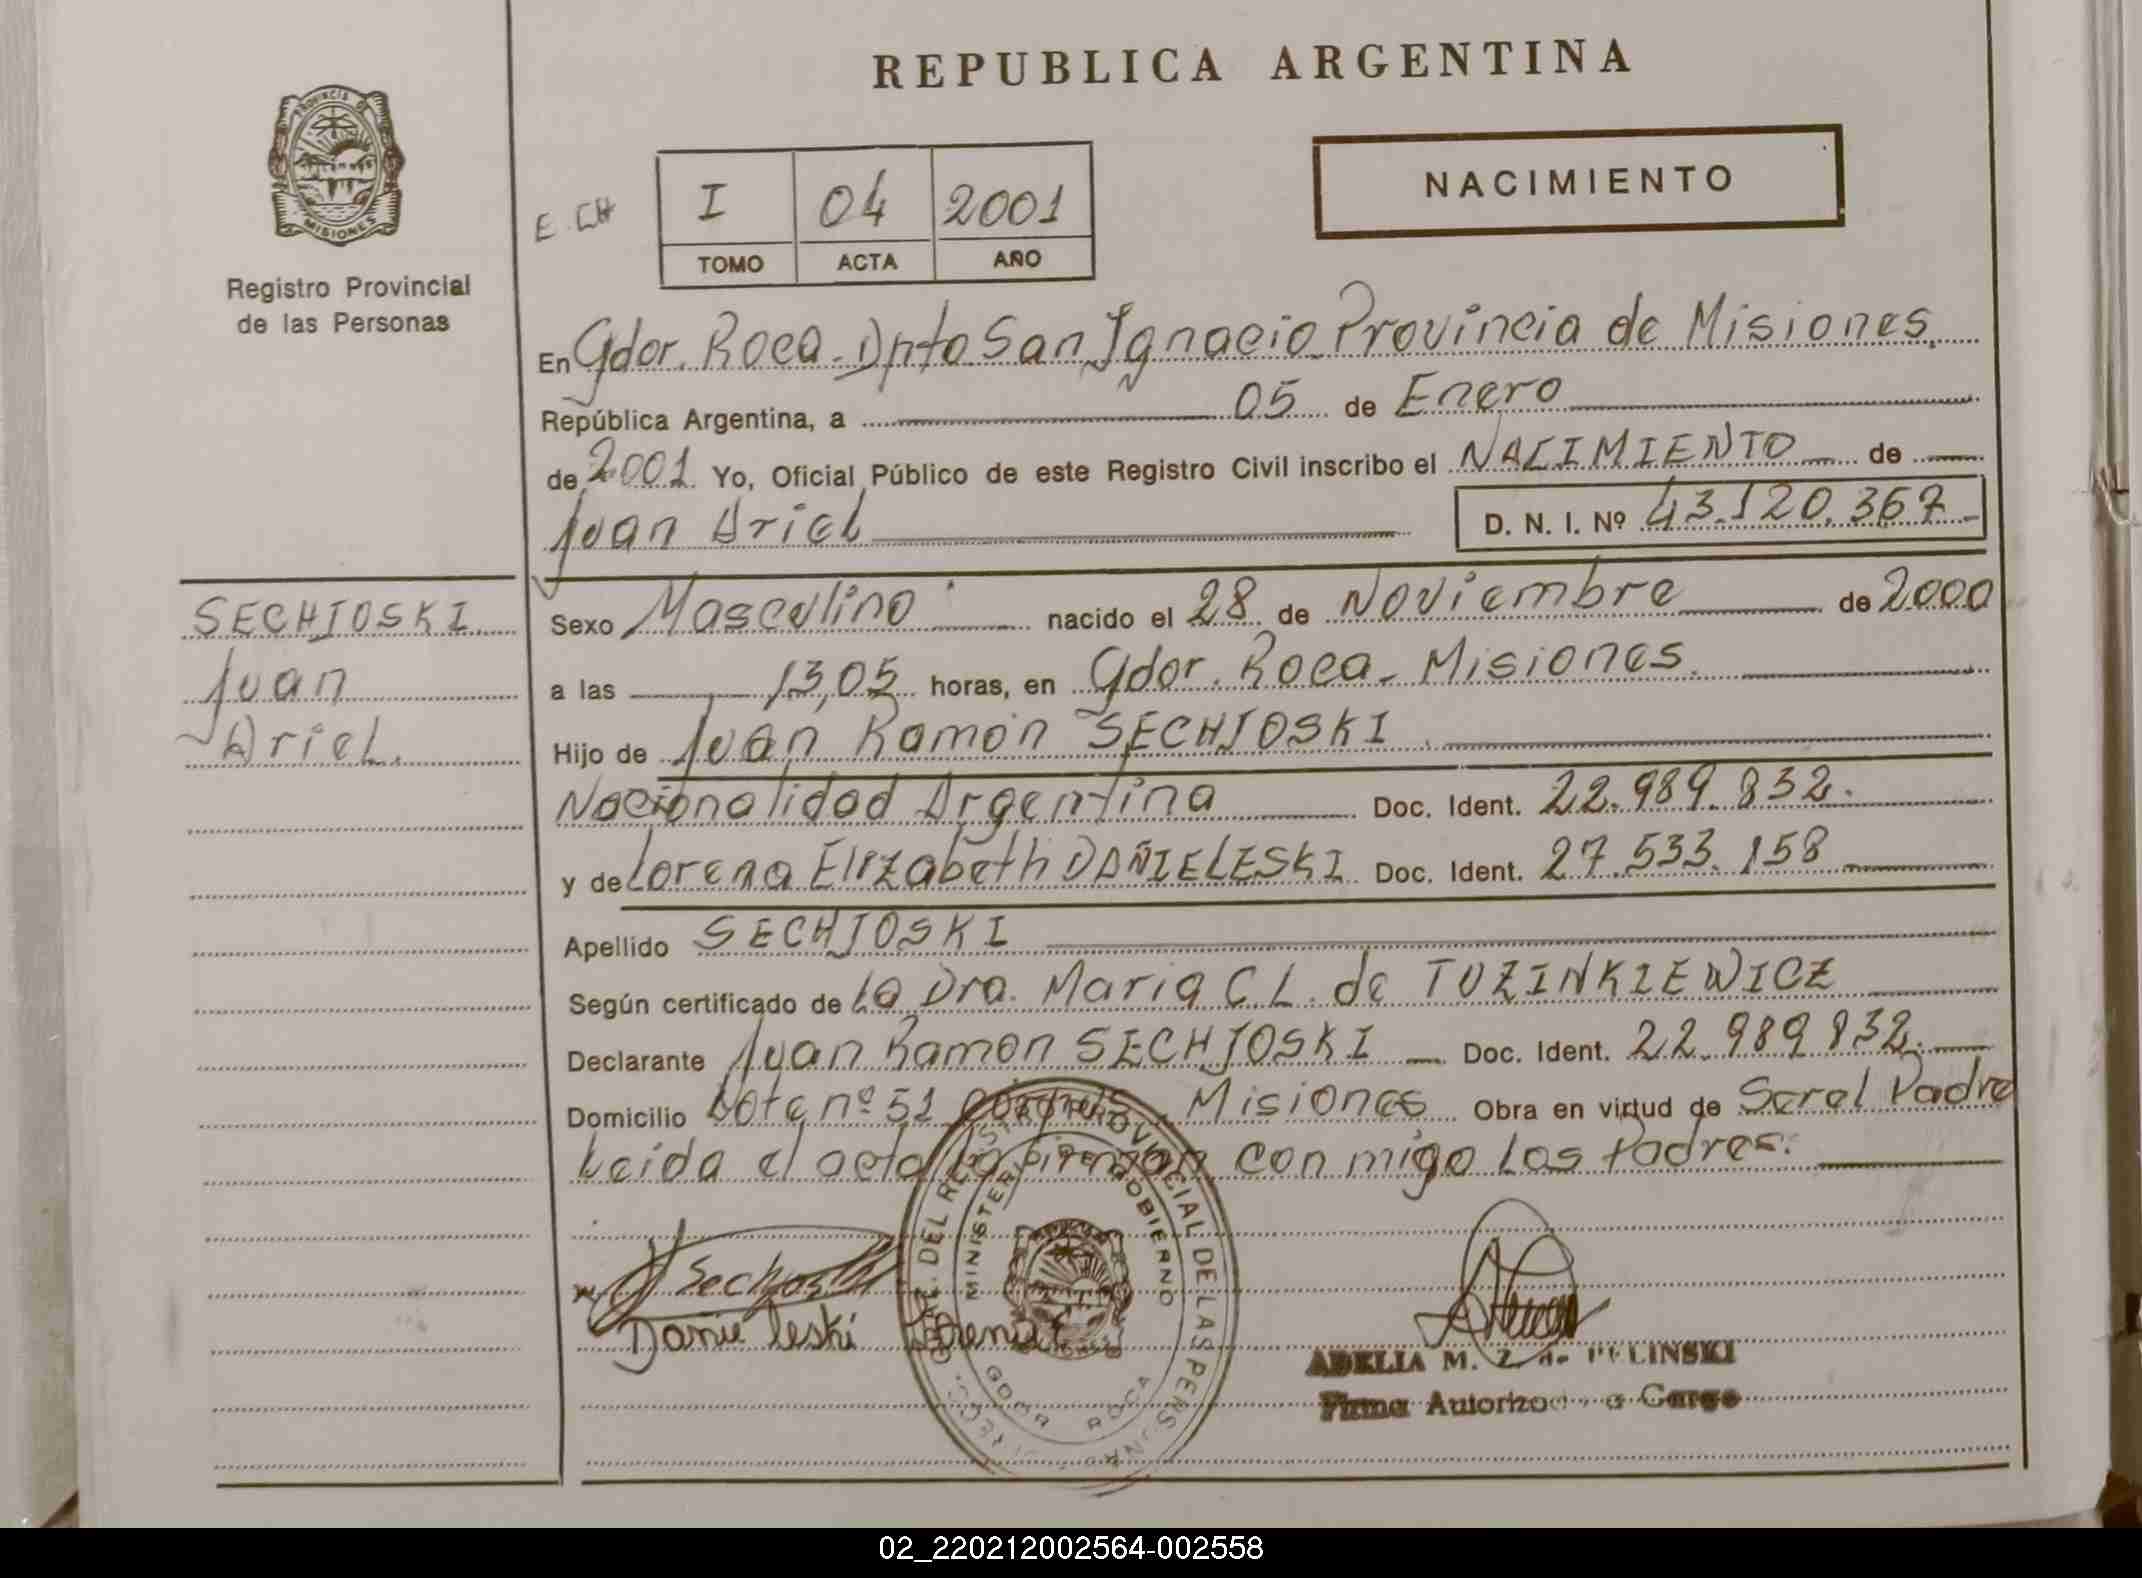 REPUBLICA ARGENTINA
PROVINCIA DE
MISIONES
Registro Provincial
de las Personas
NACIMIENTO
E. CH
I 04 2001
TOMO ACTA AÑO
En Gdor. Roca. Dpto San Ignacio Provincia de Misiones.
República Argentina, a 05 de Enero
de 2001 Yo, Oficial Público de este Registro Civil inscribo el NACIMIENTO de
Juan Ariel D. N. I. Nº 43.120.367
SECHJOSKI
Juan
Ariel.
Sexo Masculino nacido el 28 de Noviembre de 2000
a las 13,05 horas, en Gdor. Roca - Misiones.
Hijo de Juan Ramón SECHJOSKI
Nacionalidad Argentina Doc. Ident. 22.989.832.
y de Lorena Elizabeth DAÑIELESKI Doc. Ident. 27.533.158
Apellido SECHJOSKI
Según certificado de La Dra. Maria C L. de TUZINKIEWICZ
Declarante Juan Ramon SECHJOSKI Doc. Ident. 22.989.832.
Domicilio Lote nº 51 Misiones Obra en virtud de Ser el Padre
Leida el acta la firman con migo Los Padres.
DEL REGISTRO PROVINCIAL DE LAS PERSONAS
MINISTERIO DE GOBIERNO
GDOR ROCA
Sechjoski
Danieleski
ADELIA M. Z. de PELINSKI
Firma Autorizada a Cargo
02_220212002564-002558